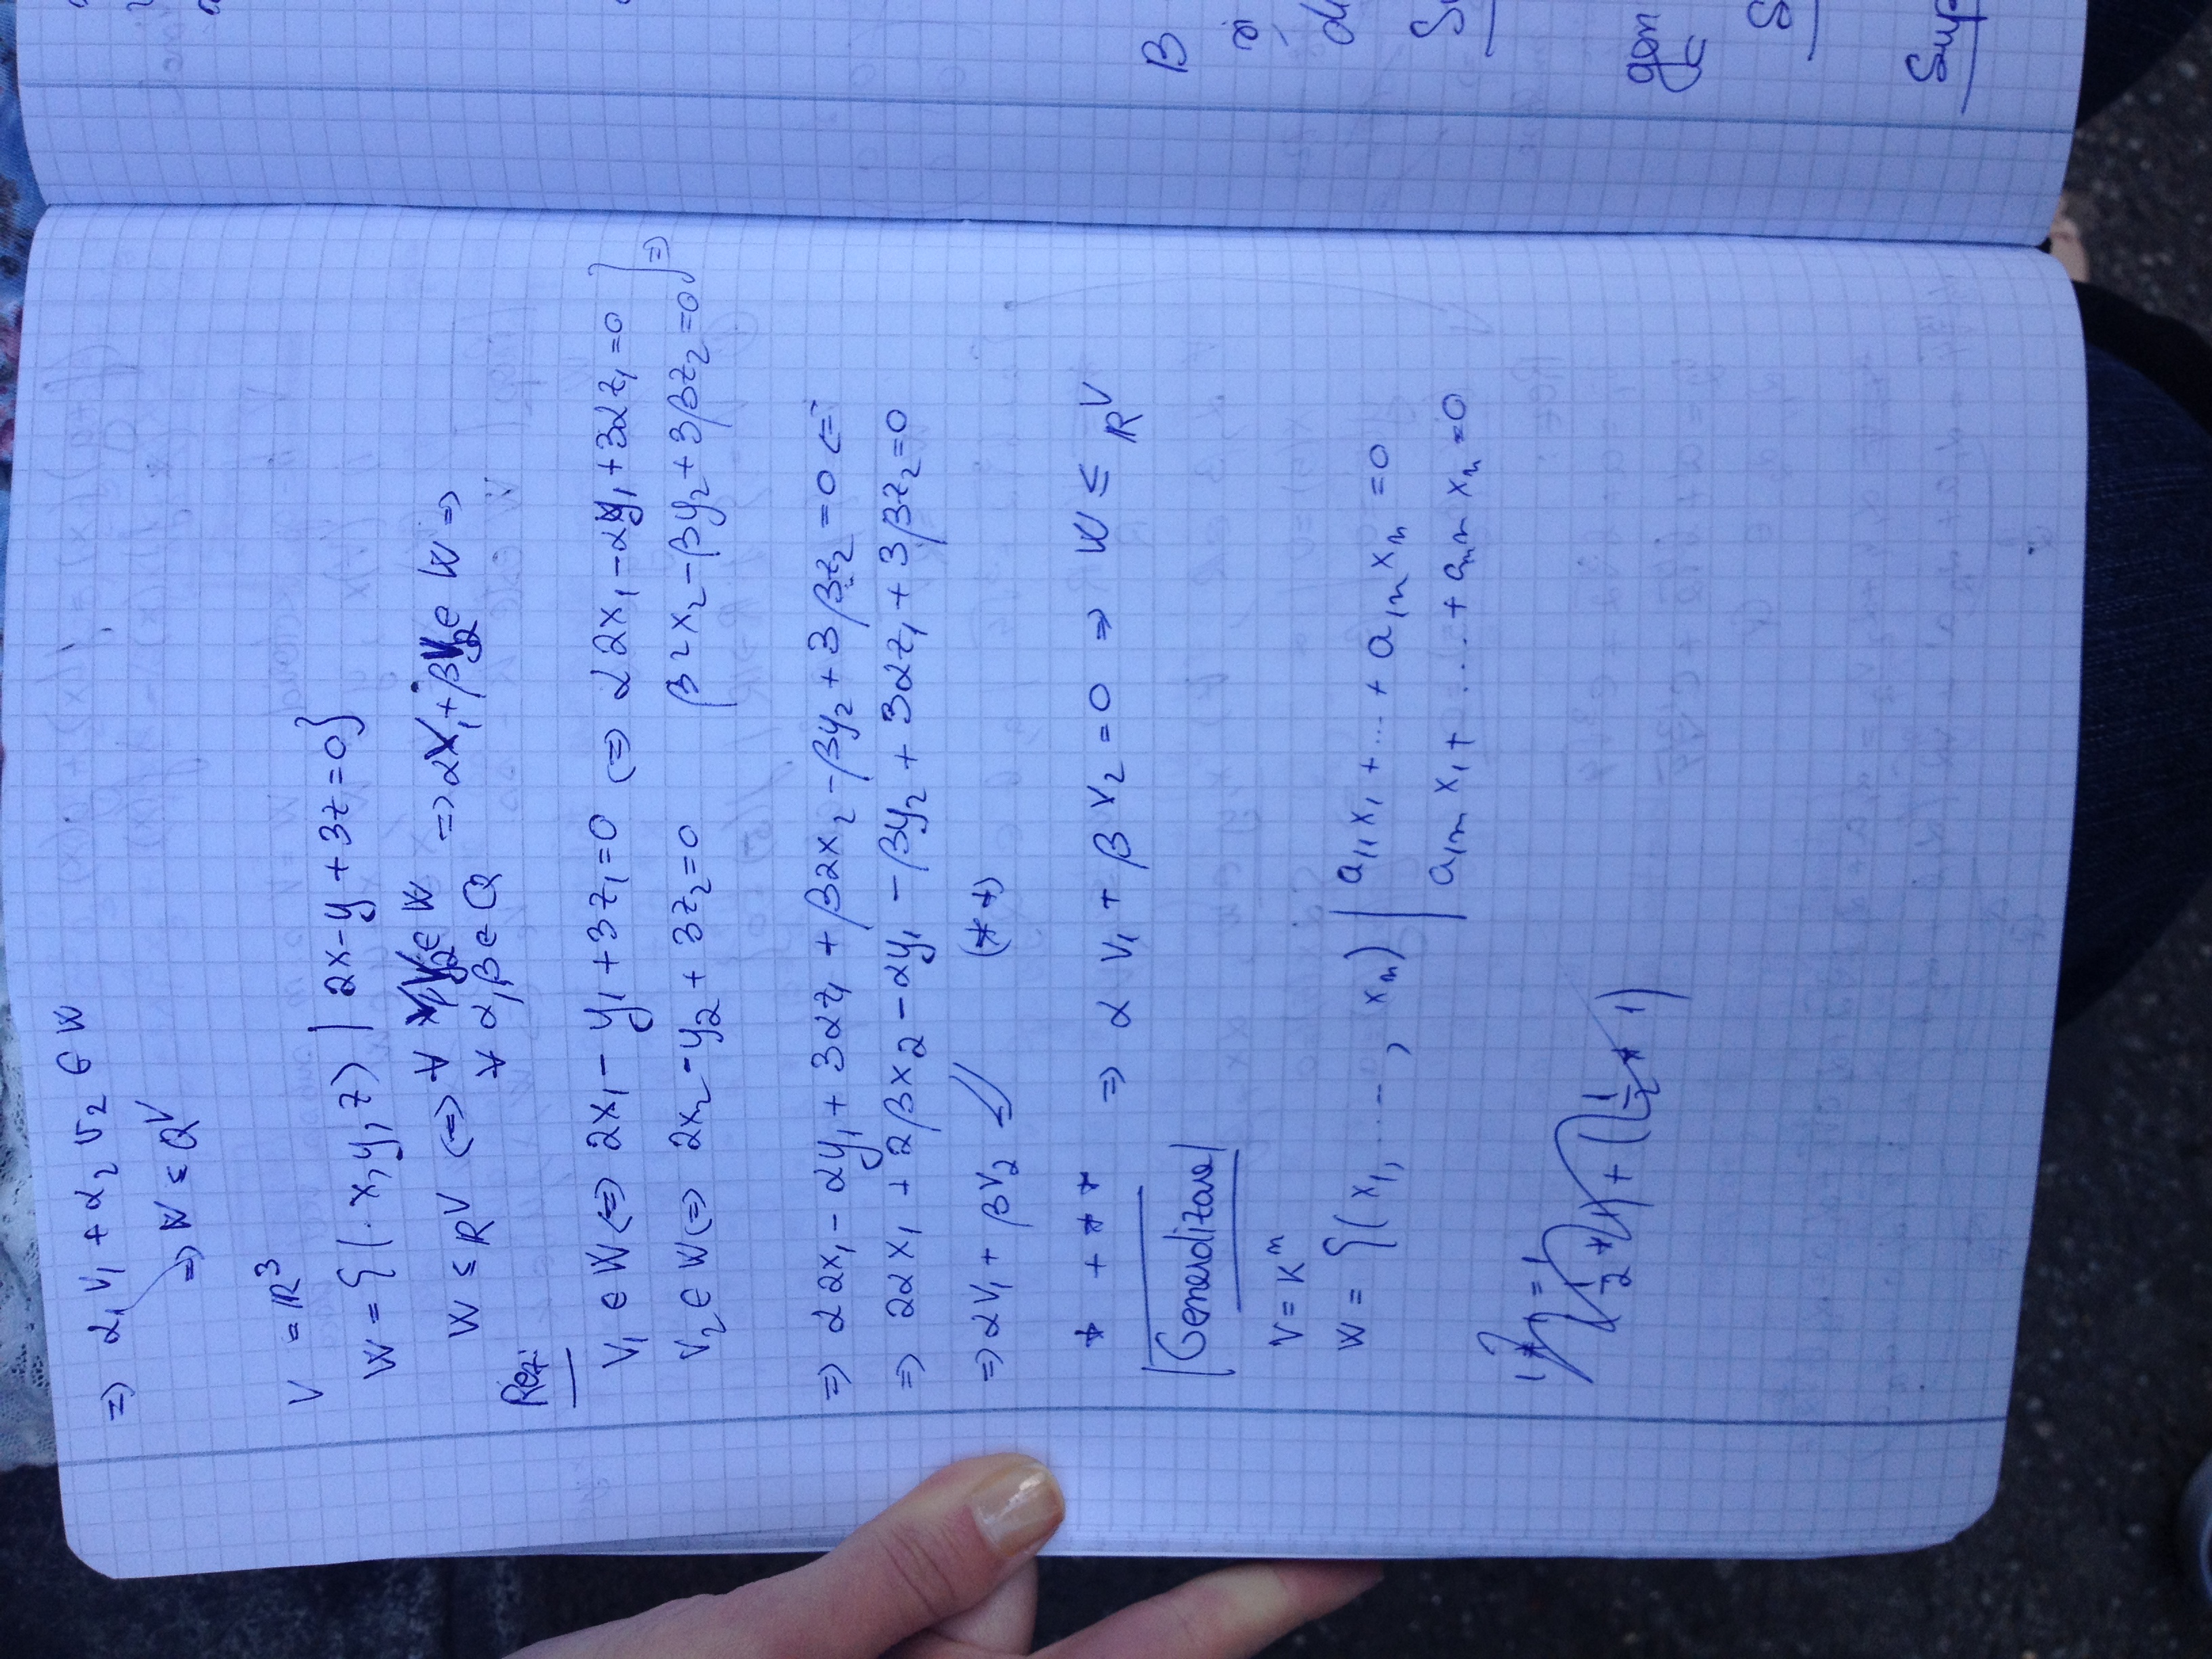 => α₁ v₁ + α₂ v₂ ∈ W
=> W ≤ Q V
V = ℝ³
W = {(x, y, z) | 2x - y + 3z = 0}
W ≤ ℝ V <=> ∀ V₁, V₂ ∈ W => αV₁ + βV₂ ∈ W =>
∀ α, β ∈ Q
Rez:
V₁ ∈ W <=> 2x₁ - y₁ + 3z₁ = 0 <=> α2x₁ - αy₁ + 3αz₁ = 0 } =>
V₂ ∈ W <=> 2x₂ - y₂ + 3z₂ = 0 β2x₂ - βy₂ + 3βz₂ = 0
=> α2x₁ - αy₁ + 3αz₁ + β2x₂ - βy₂ + 3βz₂ = 0 <=
=> 2αx₁ + 2βx₂ - αy₁ - βy₂ + 3αz₁ + 3βz₂ = 0
=> αV₁ + βV₂ (**)
* + ** => α V₁ + β V₂ = 0 => W ≤ ℝ V
Generalizare
V = Kⁿ
W = {(x₁, ..., xₙ) | a₁₁x₁ + ... + a₁ₙxₙ = 0
a₁ₘ x₁ + ... + aₘₙ xₙ = 0
1 * 1 = 1
(1/2 * 1) + (1/2 * 1)
B
și
gen
Sup